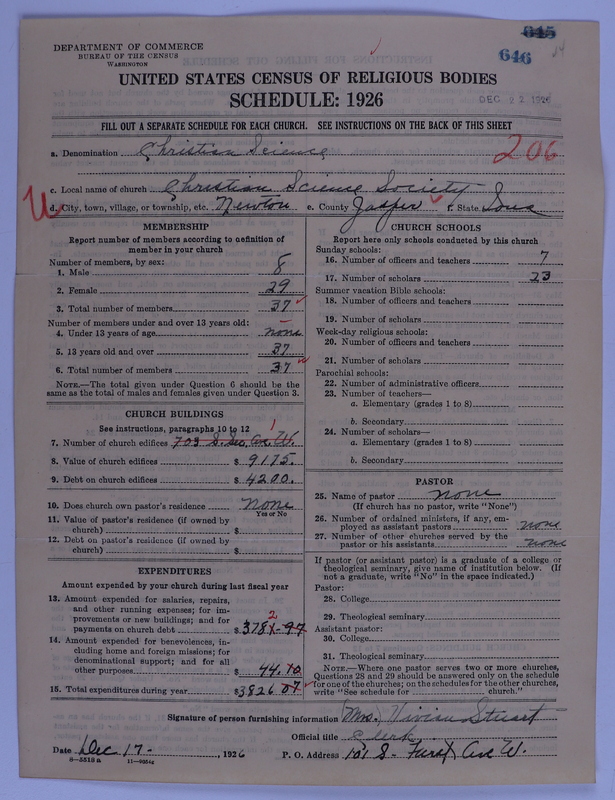 645
646
DEPARTMENT OF COMMERCE
BUREAU OF THE CENSUS
WASHINGTON
UNITED STATES CENSUS OF RELIGIOUS BODIES
SCHEDULE: 1926
DEC 22 1926
FILL OUT A SEPARATE SCHEDULE FOR EACH CHURCH. SEE INSTRUCTIONS ON THE BACK OF THIS SHEET
a. Denomination Christian Science
206
c. Local name of church Christian Science Society
U
d. City, town, village, or township, etc. Newton e. County Jasper f. State Iowa
MEMBERSHIP
Report number of members according to definition of
member in your church
Number of members, by sex:
1. Male 8
2. Female 29
3. Total number of members 37
Number of members under and over 13 years old:
4. Under 13 years of age none
5. 13 years old and over 37
6. Total number of members 37
NOTE.—The total given under Question 6 should be
same as the total of males and females given under Question 3.
CHURCH BUILDINGS
See instructions, paragraphs 10 to 12
1
7. Number of church edifices 703 S. Sec. Ave. W.
8. Value of church edifices $ 9175.
9. Debt on church edifices $ 4200.
10. Does church own pastor's residence none
Yes or No
11. Value of pastor's residence (if owned by
church) $
12. Debt on pastor's residence (if owned by
church) $
EXPENDITURES
Amount expended by your church during last fiscal year
13. Amount expended for salaries, repairs,
and other running expenses; for im-
provements or new buildings; and for
2
payments on church debt $ 3781.97
14. Amount expended for benevolences, in-
cluding home and foreign missions; for
denominational support; and for all
other purposes $ 44.10
15. Total expenditures during year $ 3826.07
CHURCH SCHOOLS
Report here only schools conducted by this church
Sunday schools:
16. Number of officers and teachers 7
17. Number of scholars 23
Summer vacation Bible schools:
18. Number of officers and teachers
19. Number of scholars
Week-day religious schools:
20. Number of officers and teachers
21. Number of scholars
Parochial schools:
22. Number of administrative officers
23. Number of teachers—
a. Elementary (grades 1 to 8)
b. Secondary
24. Number of scholars—
a. Elementary (grades 1 to 8)
b. Secondary
PASTOR
25. Name of pastor none
(If church has no pastor, write "None")
26. Number of ordained ministers, if any, em-
ployed as assistant pastors none
27. Number of other churches served by the
pastor or his assistants none
If pastor (or assistant pastor) is a graduate of a college or
theological seminary, give name of institution below. (If
not a graduate, write "No" in the space indicated.)
Pastor:
28. College
29. Theological seminary
Assistant pastor:
30. College
31. Theological seminary
NOTE.—Where one pastor serves two or more churches,
Questions 28 and 29 should be answered only on the schedule
for one of the churches; on the schedules for the other churches,
write "See schedule for church."
Signature of person furnishing information (Mrs.) Vivian Stuart
Official title Clerk
Date Dec 17- , 1926 P. O. Address 101 S- First Ave W.
8—5518a 11—9054g